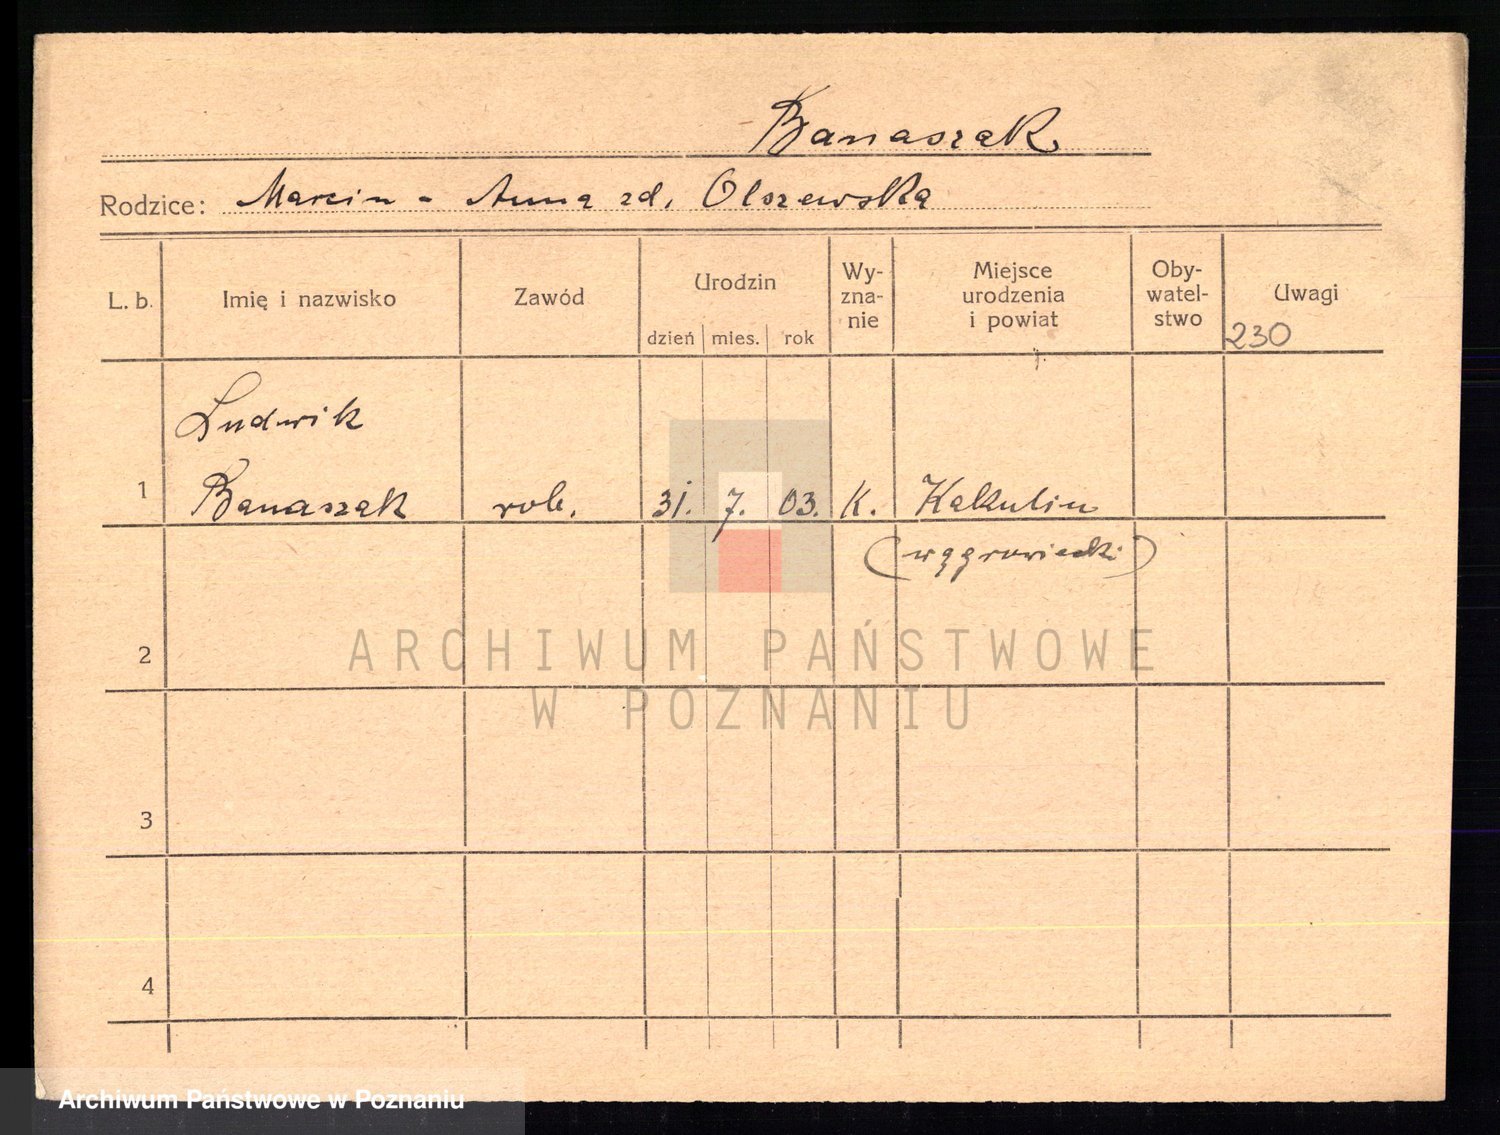 Banaszak
Rodzice: Marcin - Anna zd. Olszewska
L. b.
Imię i nazwisko
Zawód
Urodzin
dzień mies. rok
Wy-
zna-
nie
Miejsce
urodzenia
i powiat
Oby-
watel-
stwo
Uwagi
230
Ludwik
1 Banaszak rob. 31. 7. 03. K. Kakulin
(wągrowiecki)
2
ARCHIWUM PAŃSTWOWE
W POZNANIU
3
4
Archiwum Państwowe w Poznaniu